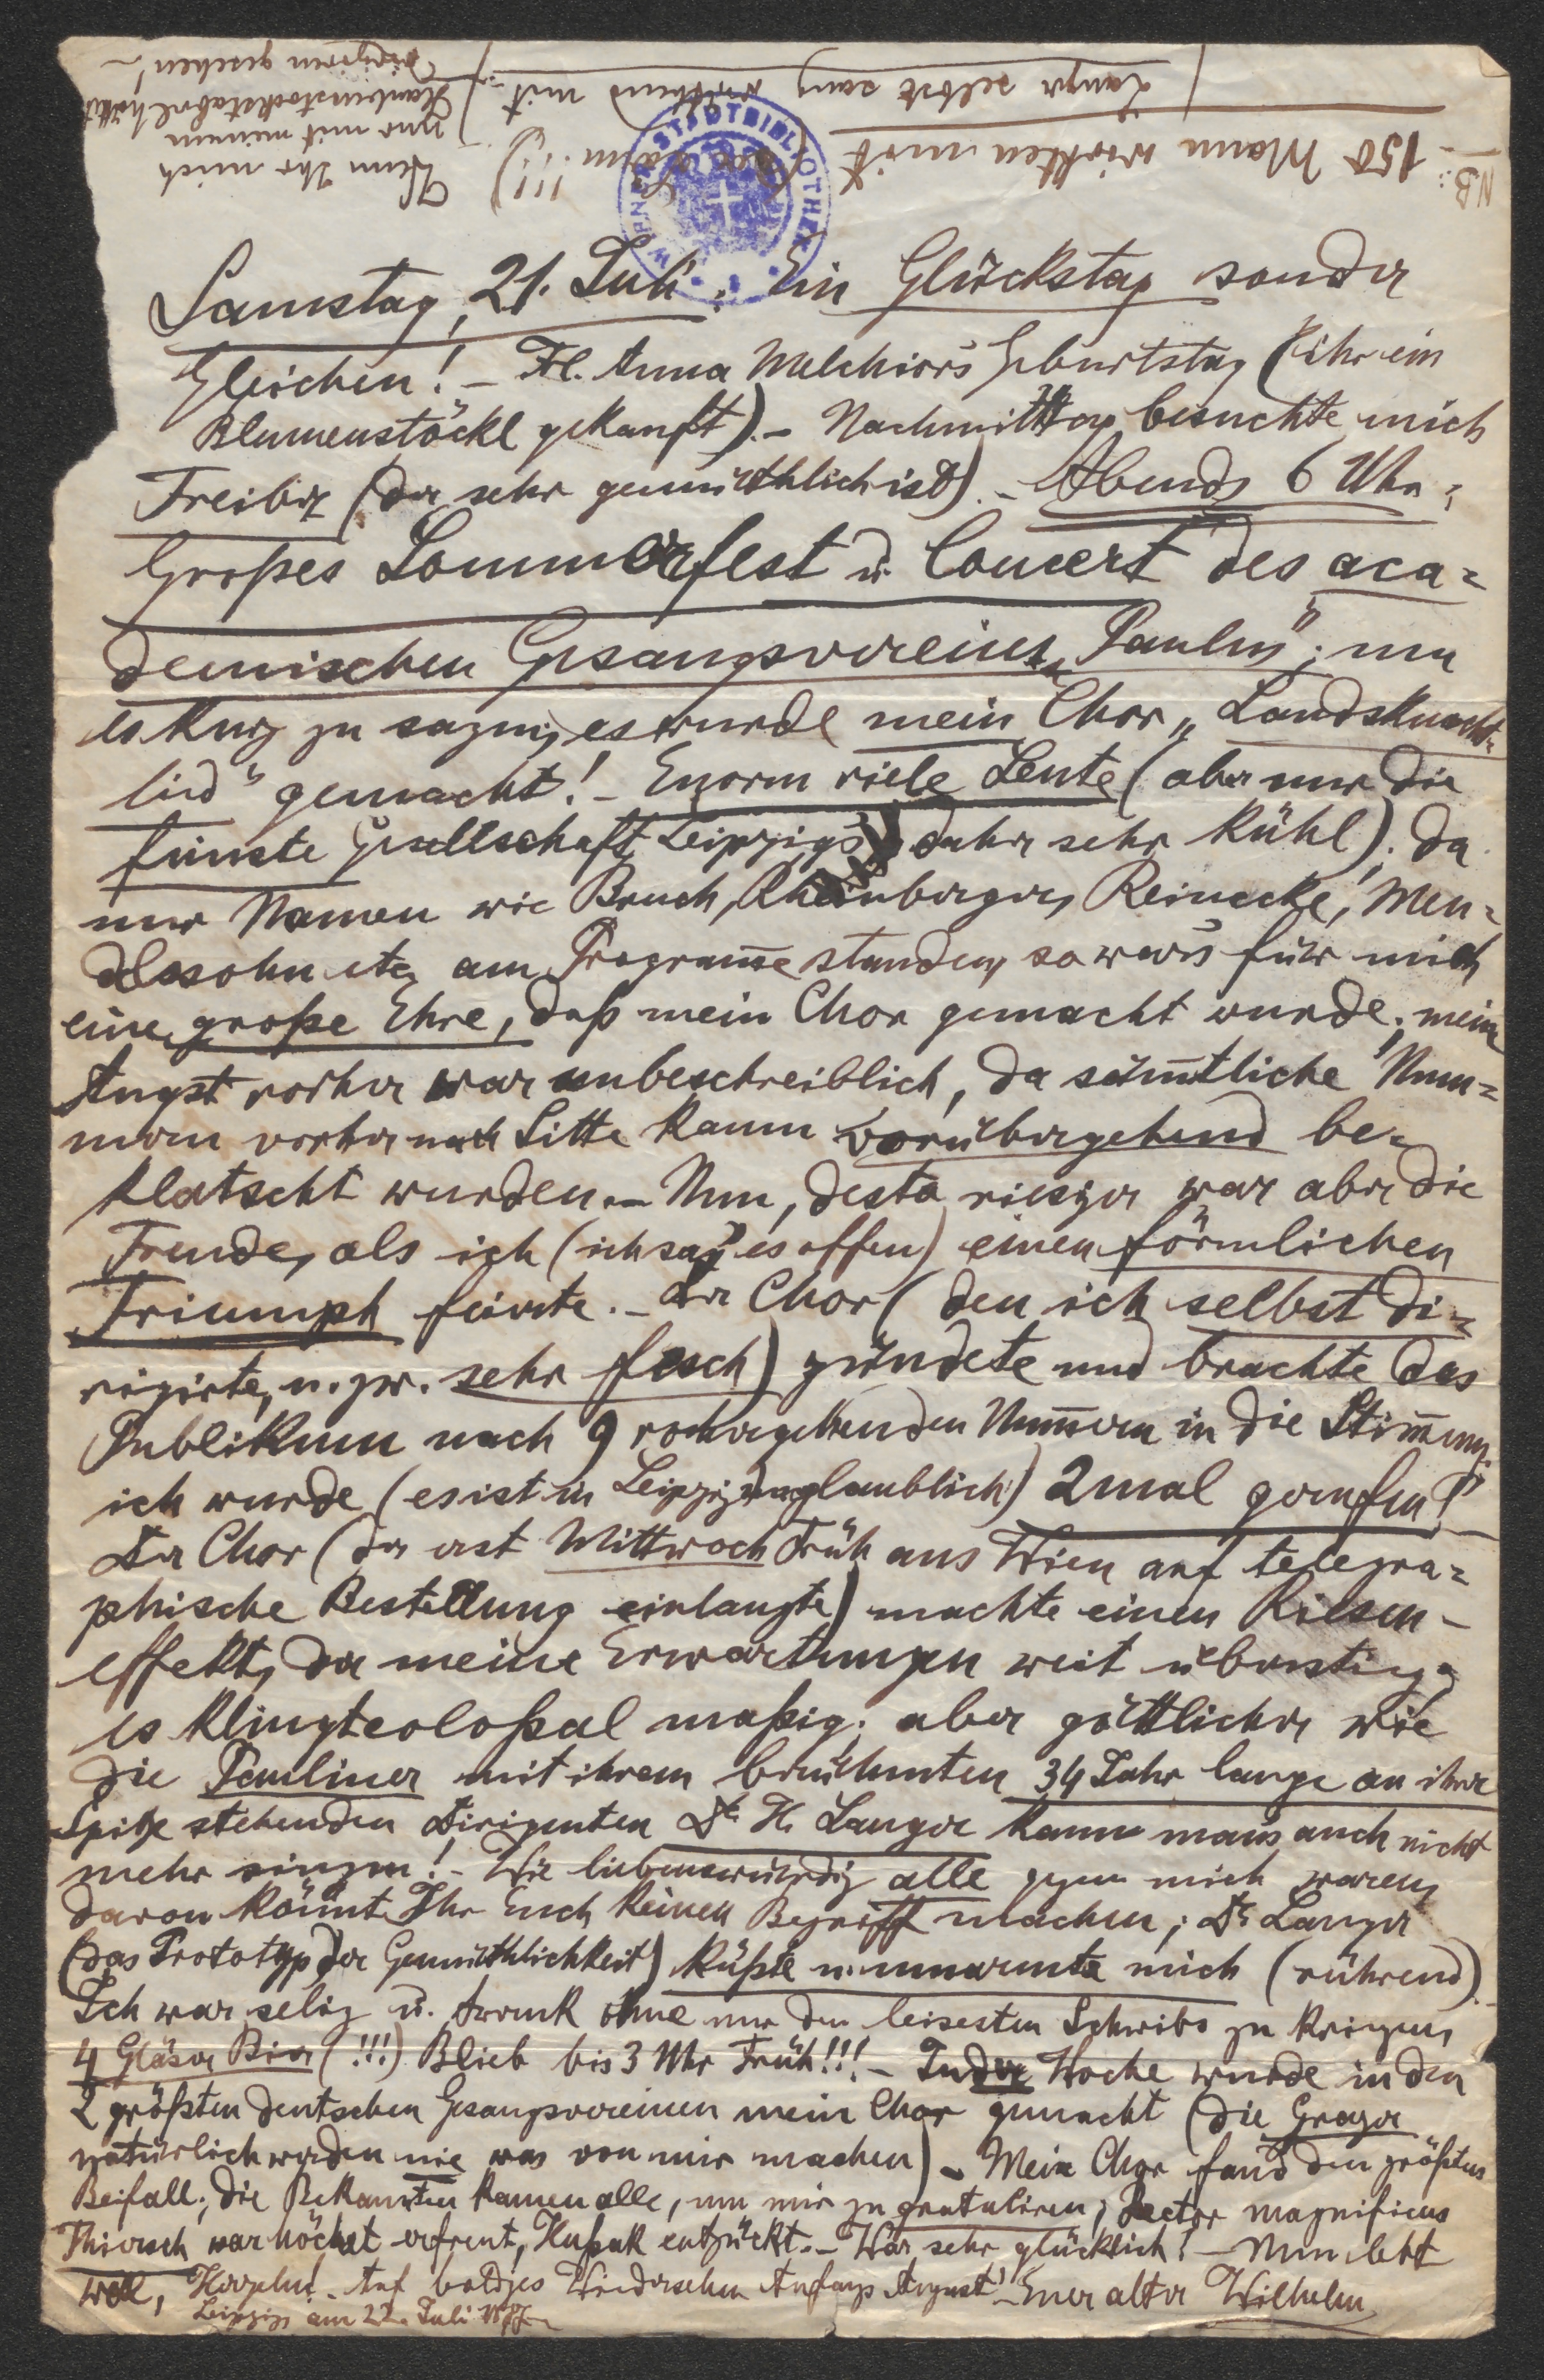 NB: 150 Mann wirkten mit
Langer selbst sang mit
Wenn Ihr mich
nur mit meinem
dirigiren gesehen!
WIENER STADTBIBLIOTHEK
Samstag, 21. Juli. Ein Glückstag sonder
Gleichen! – Frl. Anna Melchior's Geburtstag (ihr ein
Blumenstöckl gekauft). – Nachmittag besuchte mich
Freiberg (der sehr gemüthlich ist). – Abends 6 Uhr:
Großes Sommerfest u. Concert des aca=
demischen Gesangsvereines „Paulus"; um
es kurz zu sagen, es wurde mein Chor „Landsknecht=
lied" gemacht! – Enorm viele Leute (aber nur die
feinste Gesellschaft Leipzigs, daher sehr kühl); da
nur Namen wie Bruch, Rheinberger, Reinecke, Men=
delssohn etc. am Programme standen, so war's für mich
eine große Ehre, daß mein Chor gemacht wurde; meine
Angst vorher war unbeschreiblich, da sämtliche Num=
mern vorher nach Sitte kaum vorübergehend be=
klatscht wurden. – Nun, desto riesiger war aber die
Freude, als ich (ich sag' es offen) einen förmlichen
Triumph feierte. – Der Chor (den ich selbst di=
rigirte, u. zw. sehr fesch) zündete und brachte das
Publikum nach 9 vorhergehenden Nummern in die Stimmung;
ich wurde (es ist in Leipzig unglaublich) 2mal gerufen!
Der Chor (der erst Mittwoch Früh aus Wien auf telegra=
phische Bestellung einlangte) machte einen Riesen-
effekt, der meine Erwartungen weit überstieg;
es klingt colossal massig; aber göttlicher wie
die Pauliner mit ihrem berühmten 34 Jahr lange an ihrer
Spitze stehenden Dirigenten Dr. H. Langer kann man's auch nicht
mehr singen! – Wie liebenswürdig alle gegen mich waren,
davon könnt Ihr Euch keinen Begriff machen; Dr. Langer
(das Prototyp der Gemüthlichkeit) küßte u. umarmte mich (rührend).
Ich war selig u. trank ohne nur den leisesten Schwibs zu kriegen,
4 Gläser Bier (!!!) Blieb bis 3 Uhr Früh!!! – In der Woche wurde in den
2 größten deutschen Gesangsvereinen mein Chor gemacht (die Grazer
natürlich werden nie was von mir machen). – Mein Chor fand den größten
Beifall; die Bekannten kamen alle, um mir zu gratuliren; Rector magnificus
Thiersch war höchst erfreut, entzückt. – War sehr glücklich! – Nun lebt
wohl, Herzelns! – Auf baldges Wiedersehen Anfangs August! – Euer alter Wilhelm
Leipzig am 22. Juli